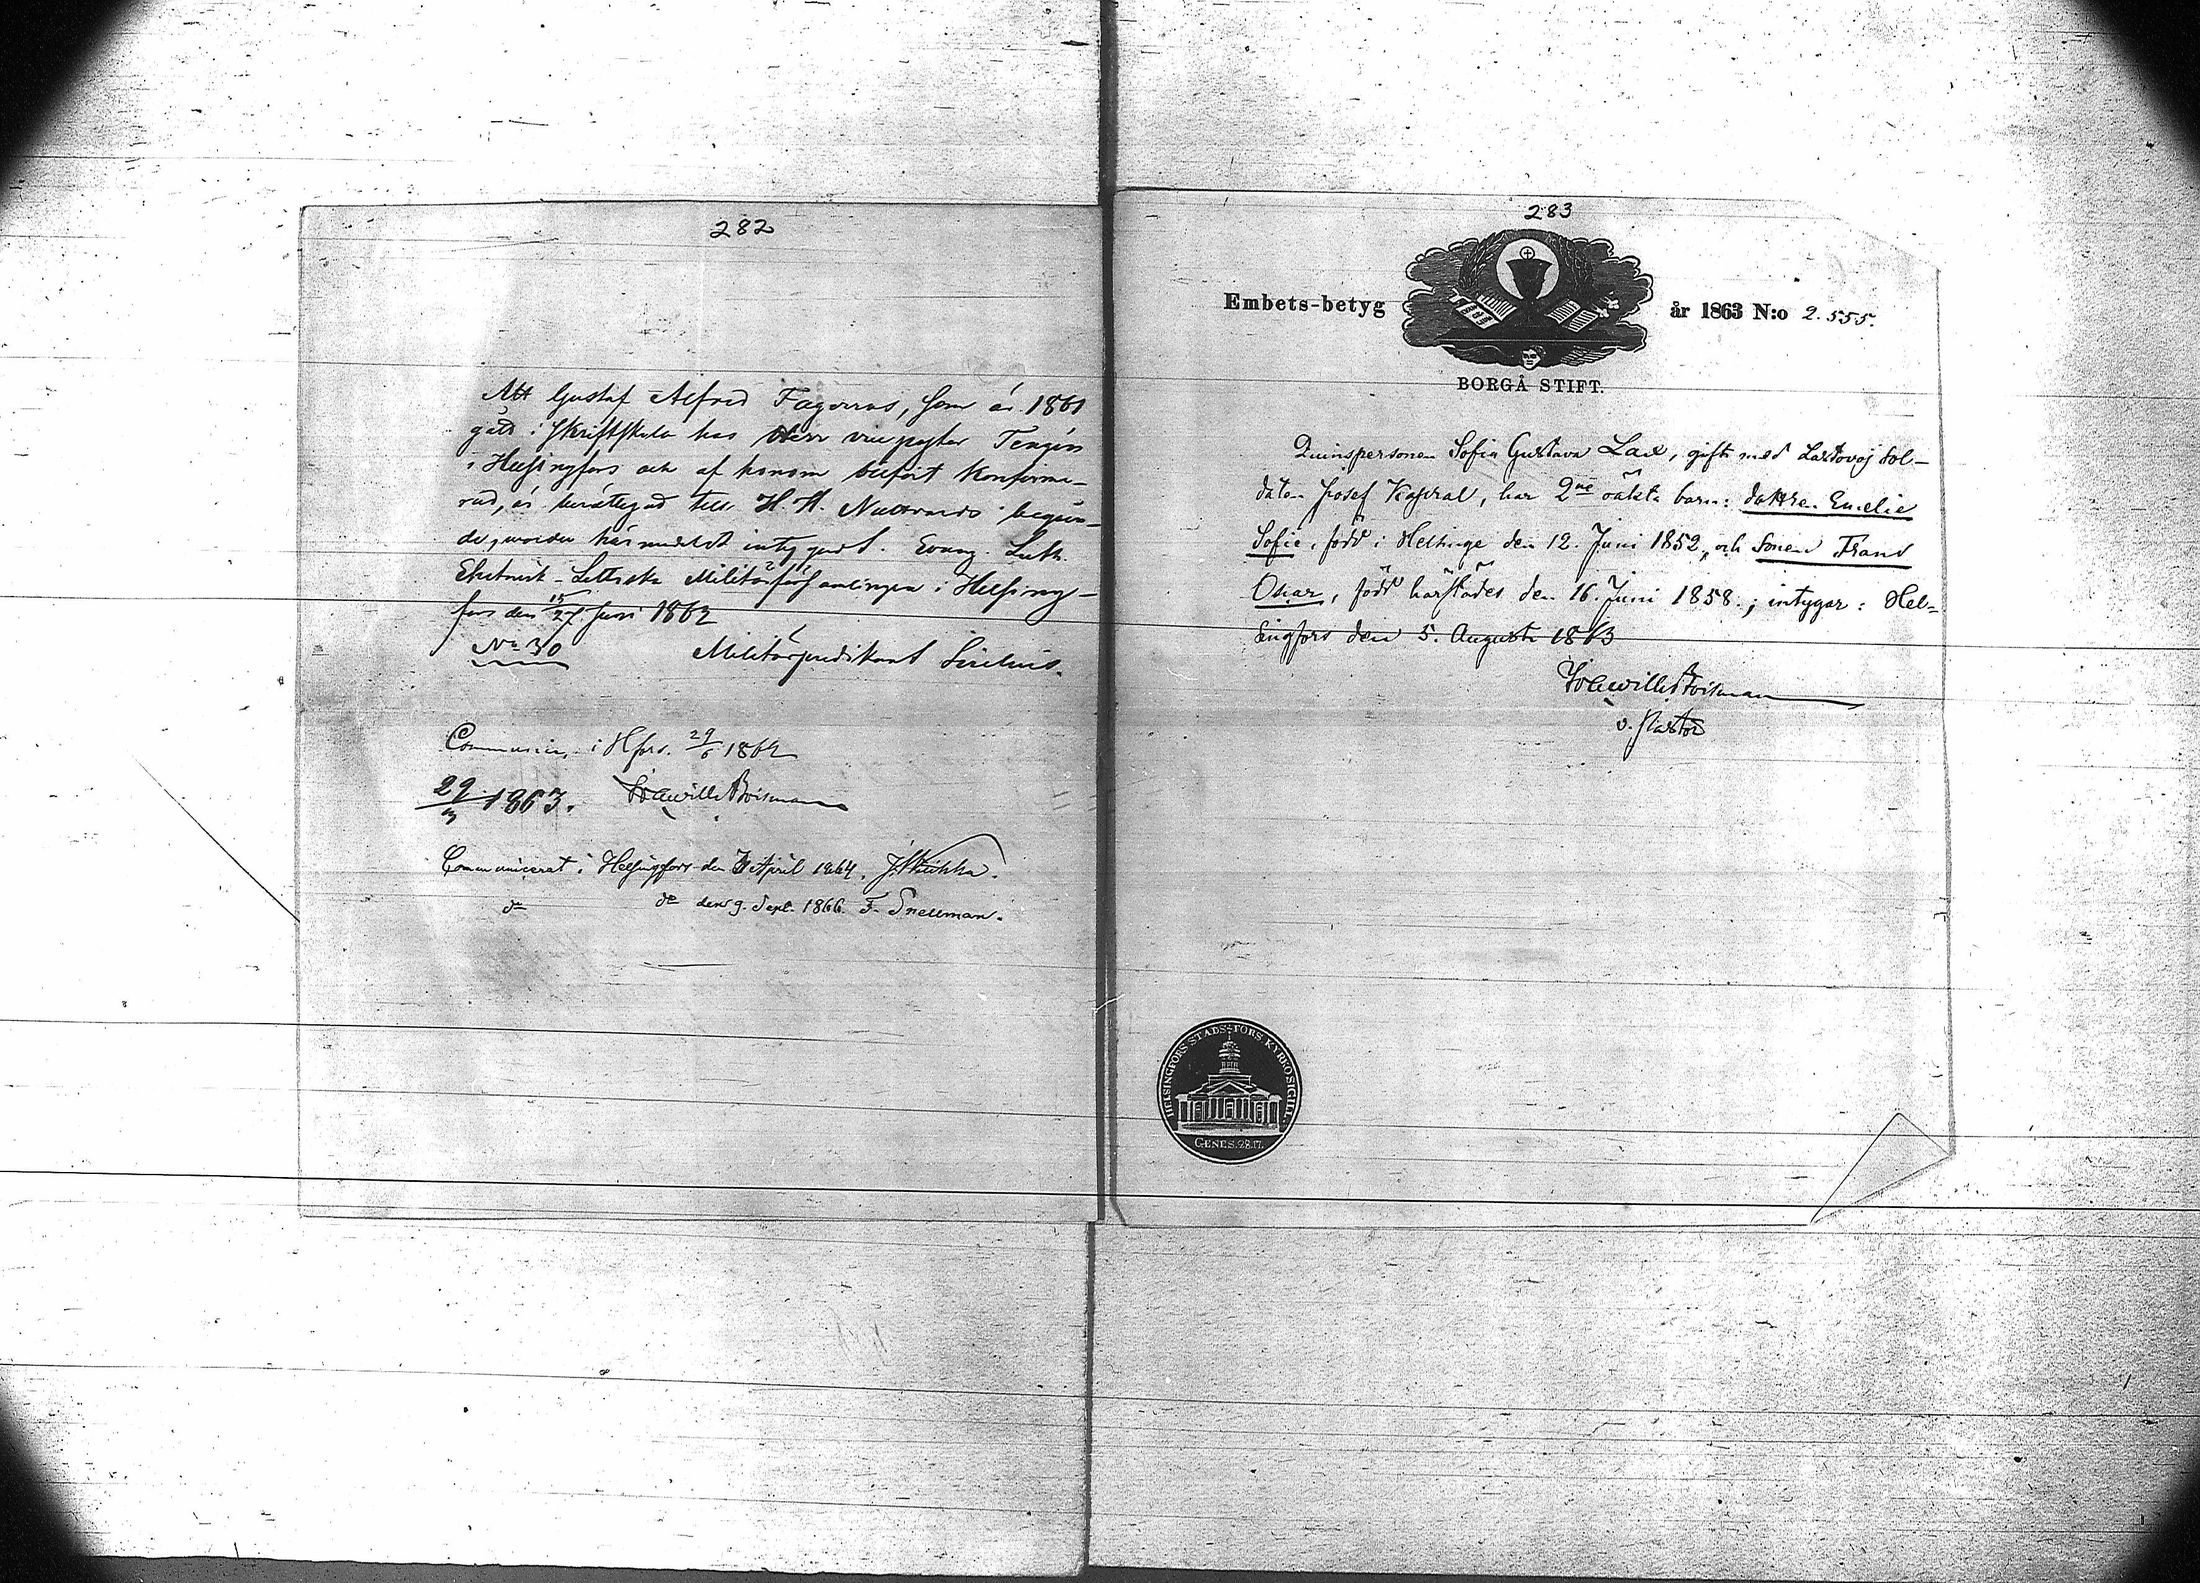 282
Att Gustaf Alfred Fagerros, som år 1861
gått i Skriftskola hos Herr vice pastor Tengén
i Helsingfors och af honom blifvit konfirme-
rad, är berättigad till H. H. Nattvards begåen-
de, warder härmedelst intygadt. Evang. Luth.
Ehstnisk-Lettiska Militärförsamlingen i Helsing-
fors den 15/27 Juni 1862
No 30 Militärpredikant Sirelius.
i Hfors. 29/6 1862
29/3 1863. Boisman
Communicerat i Helsingfors den April 1864.
do do den 9. Sept. 1866. F. Snellman.
283
Embets-betyg år 1863 N:o 2.555.
BORGÅ STIFT.
Qvinspersonen Sofia Gustava Lax, gift med Lastovoj Sol-
daten Josef Kapral, har 2ne oäkta barn: dottren Emelie
Sofie, född i Helsinge den 12. Juni 1852, och sonen Frans
Oskar, född härstädes den 16. Juni 1858.; intygar: Hel=
singfors den 5. Augusti 1863
Boisman
v. Pastor
HELSINGFORS STADS-FÖRS. KYRKOSIGILL.
GENES. 28.17.